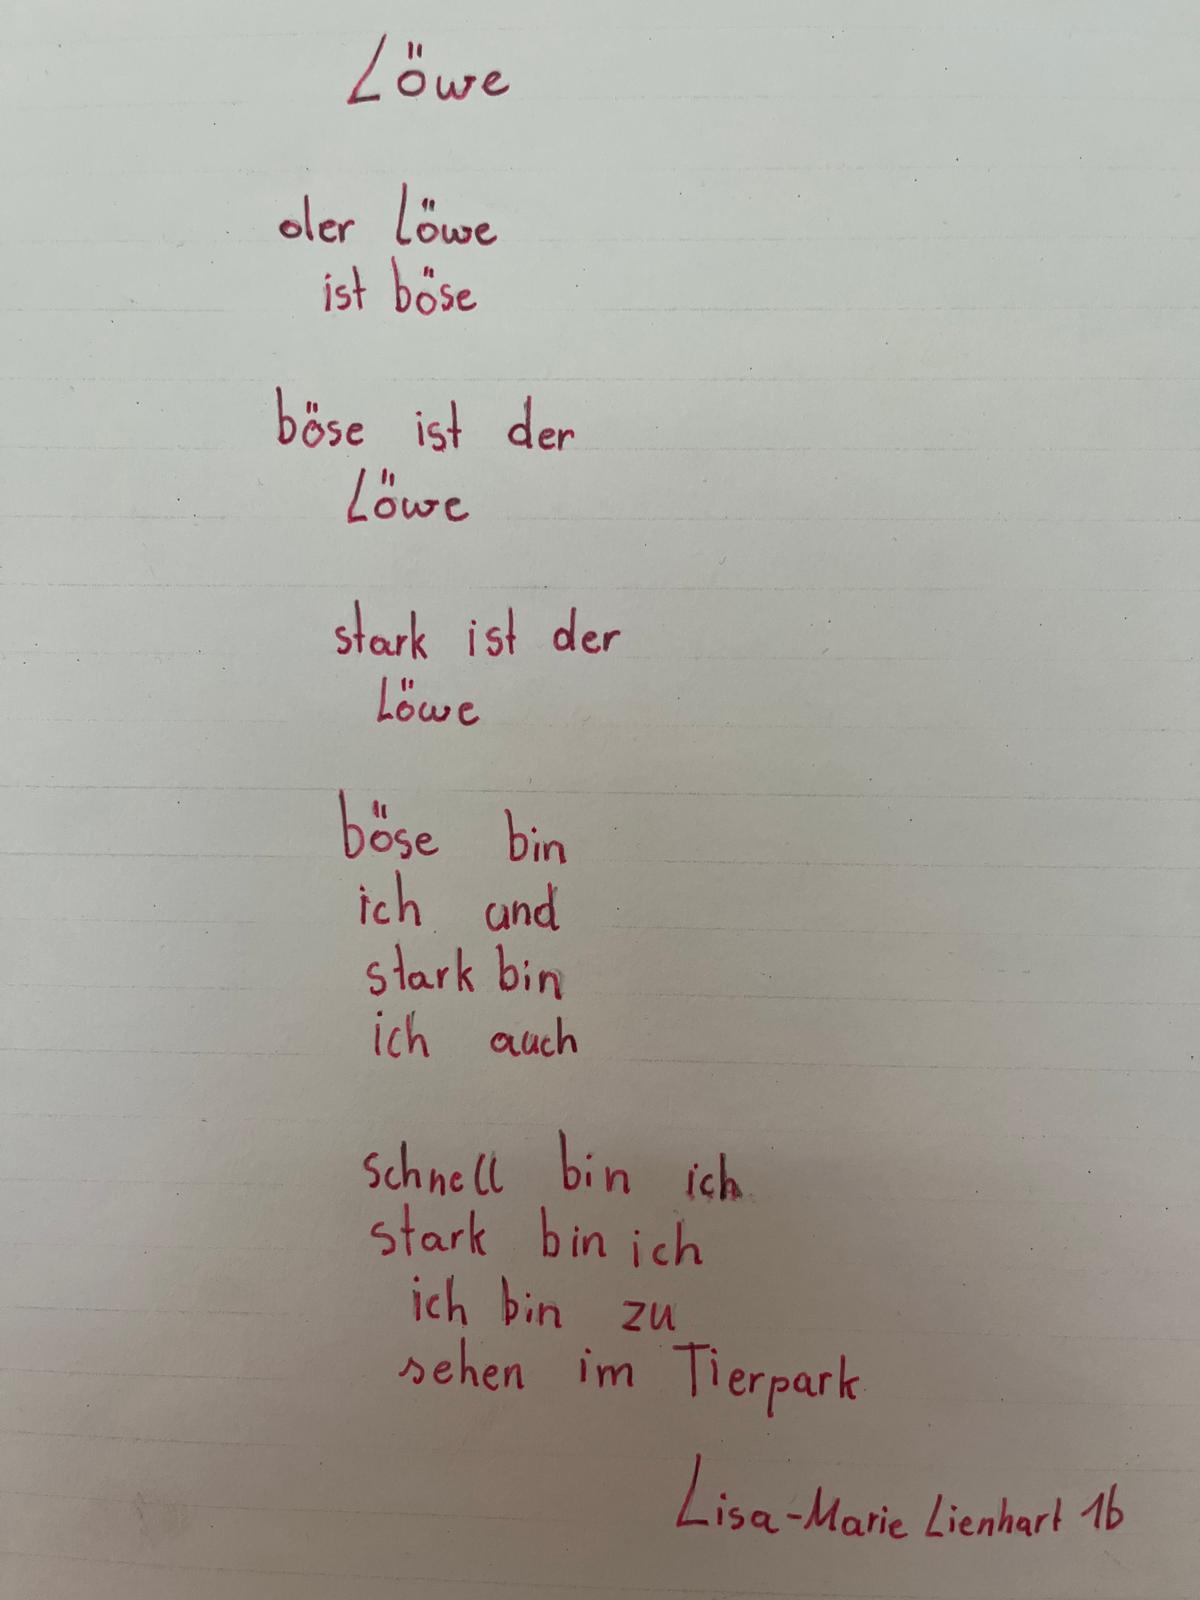 Löwe
der Löwe
ist böse
böse ist der
Löwe
stark ist der
Löwe
böse bin
ich und
stark bin
ich auch
schnell bin ich
stark bin ich
ich bin zu
sehen im Tierpark
Lisa-Marie Lienhart 1b